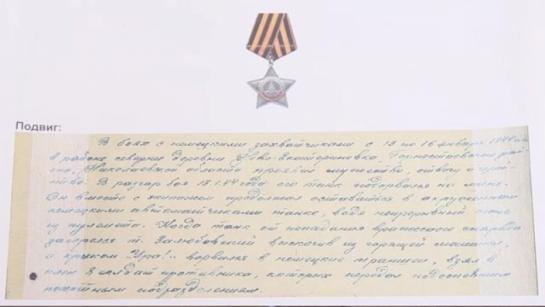 Подвиг:
В боях с немецкими захватчиками с 13 по 16 января 1944 г.
в районе севернее деревни Ново-Екатериновка,
Николаевской области проявил мужество, отвагу и
В разгар боя 15.1.44 года его танк подорвался на мине.
Он вместе с экипажем продолжал оставаться в окруженном
немецкими автоматчиками танке, ведя непрерывный огонь
из пулемета. Когда танк от попадания вражеского снаряда
загорелся т. выскочив из горящей машины,
с криком "Ура!" ворвался в немецкие траншеи, взял в
плен солдат противника, которых передал подоспевшим
пехотным подразделениям.